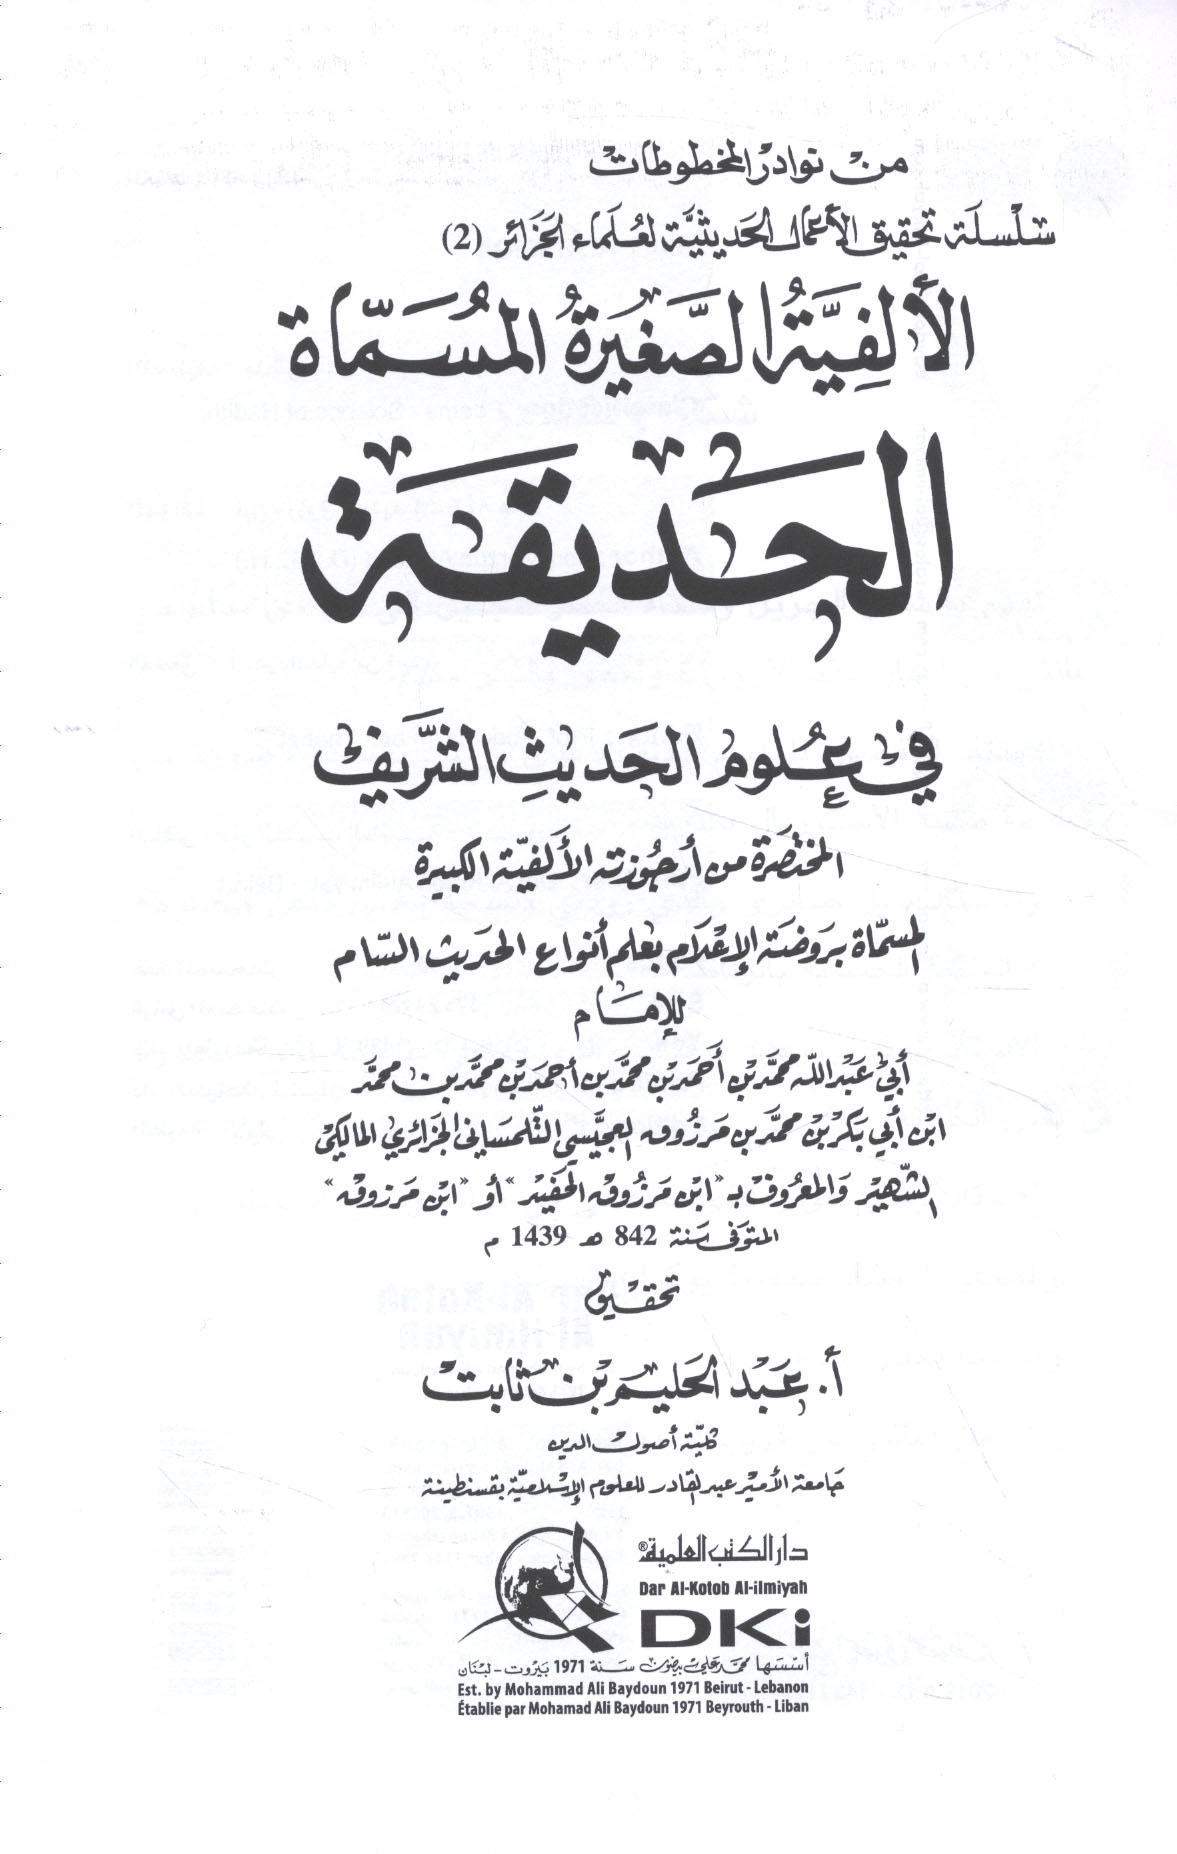 من نوادر المخطوطات
سلسلة تحقيق الأعمال الحديثية لعلماء الجزائر (2)
الألفية الصغيرة المسماة
الحديقة
في علوم الحديث الشريف
المختصرة من أرجوزته الألفية الكبيرة
المسماة بروضة الإعلام بعلم أنواع الحديث السام
للإمام
أبي عبد الله محمد بن أحمد بن محمد بن أحمد بن محمد بن محمد
ابن أبي بكر بن محمد بن مرزوق العجيسي التلمساني الجزائري المالكي
الشهير والمعروف بـ "ابن مرزوق الحفيد" أو "ابن مرزوق"
المتوفى سنة 842 هـ 1439 م
تحقيق
أ. عبد الحليم بن ثابت
كلية أصول الدين
جامعة الأمير عبد القادر للعلوم الإسلامية بقسنطينة
دار الكتب العلمية®
Dar Al-Kotob Al-ilmiyah
DKi
أسسها محمد علي بيضون سنة 1971 بيروت - لبنان
Est. by Mohammad Ali Baydoun 1971 Beirut - Lebanon
Établie par Mohamad Ali Baydoun 1971 Beyrouth - Liban